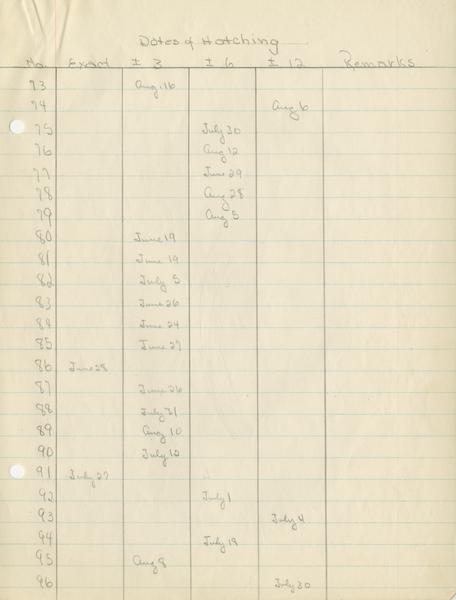 Dates of Hatching
No. Exact ± 3 ± 6 ± 12 Remarks
73 Aug. 16
74 Aug 6
75 July 30
76 Aug 12
77 June 29
78 Aug 28
79 Aug 5
80 June 19
81 June 19
82 July 5
83 June 26
84 June 24
85 June 27
86 June 28
87 June 26
88 July 31
89 Aug 10
90 July 12
91 July 27
92 July 1
93 July 4
94 July 19
95 Aug 8
96 July 30